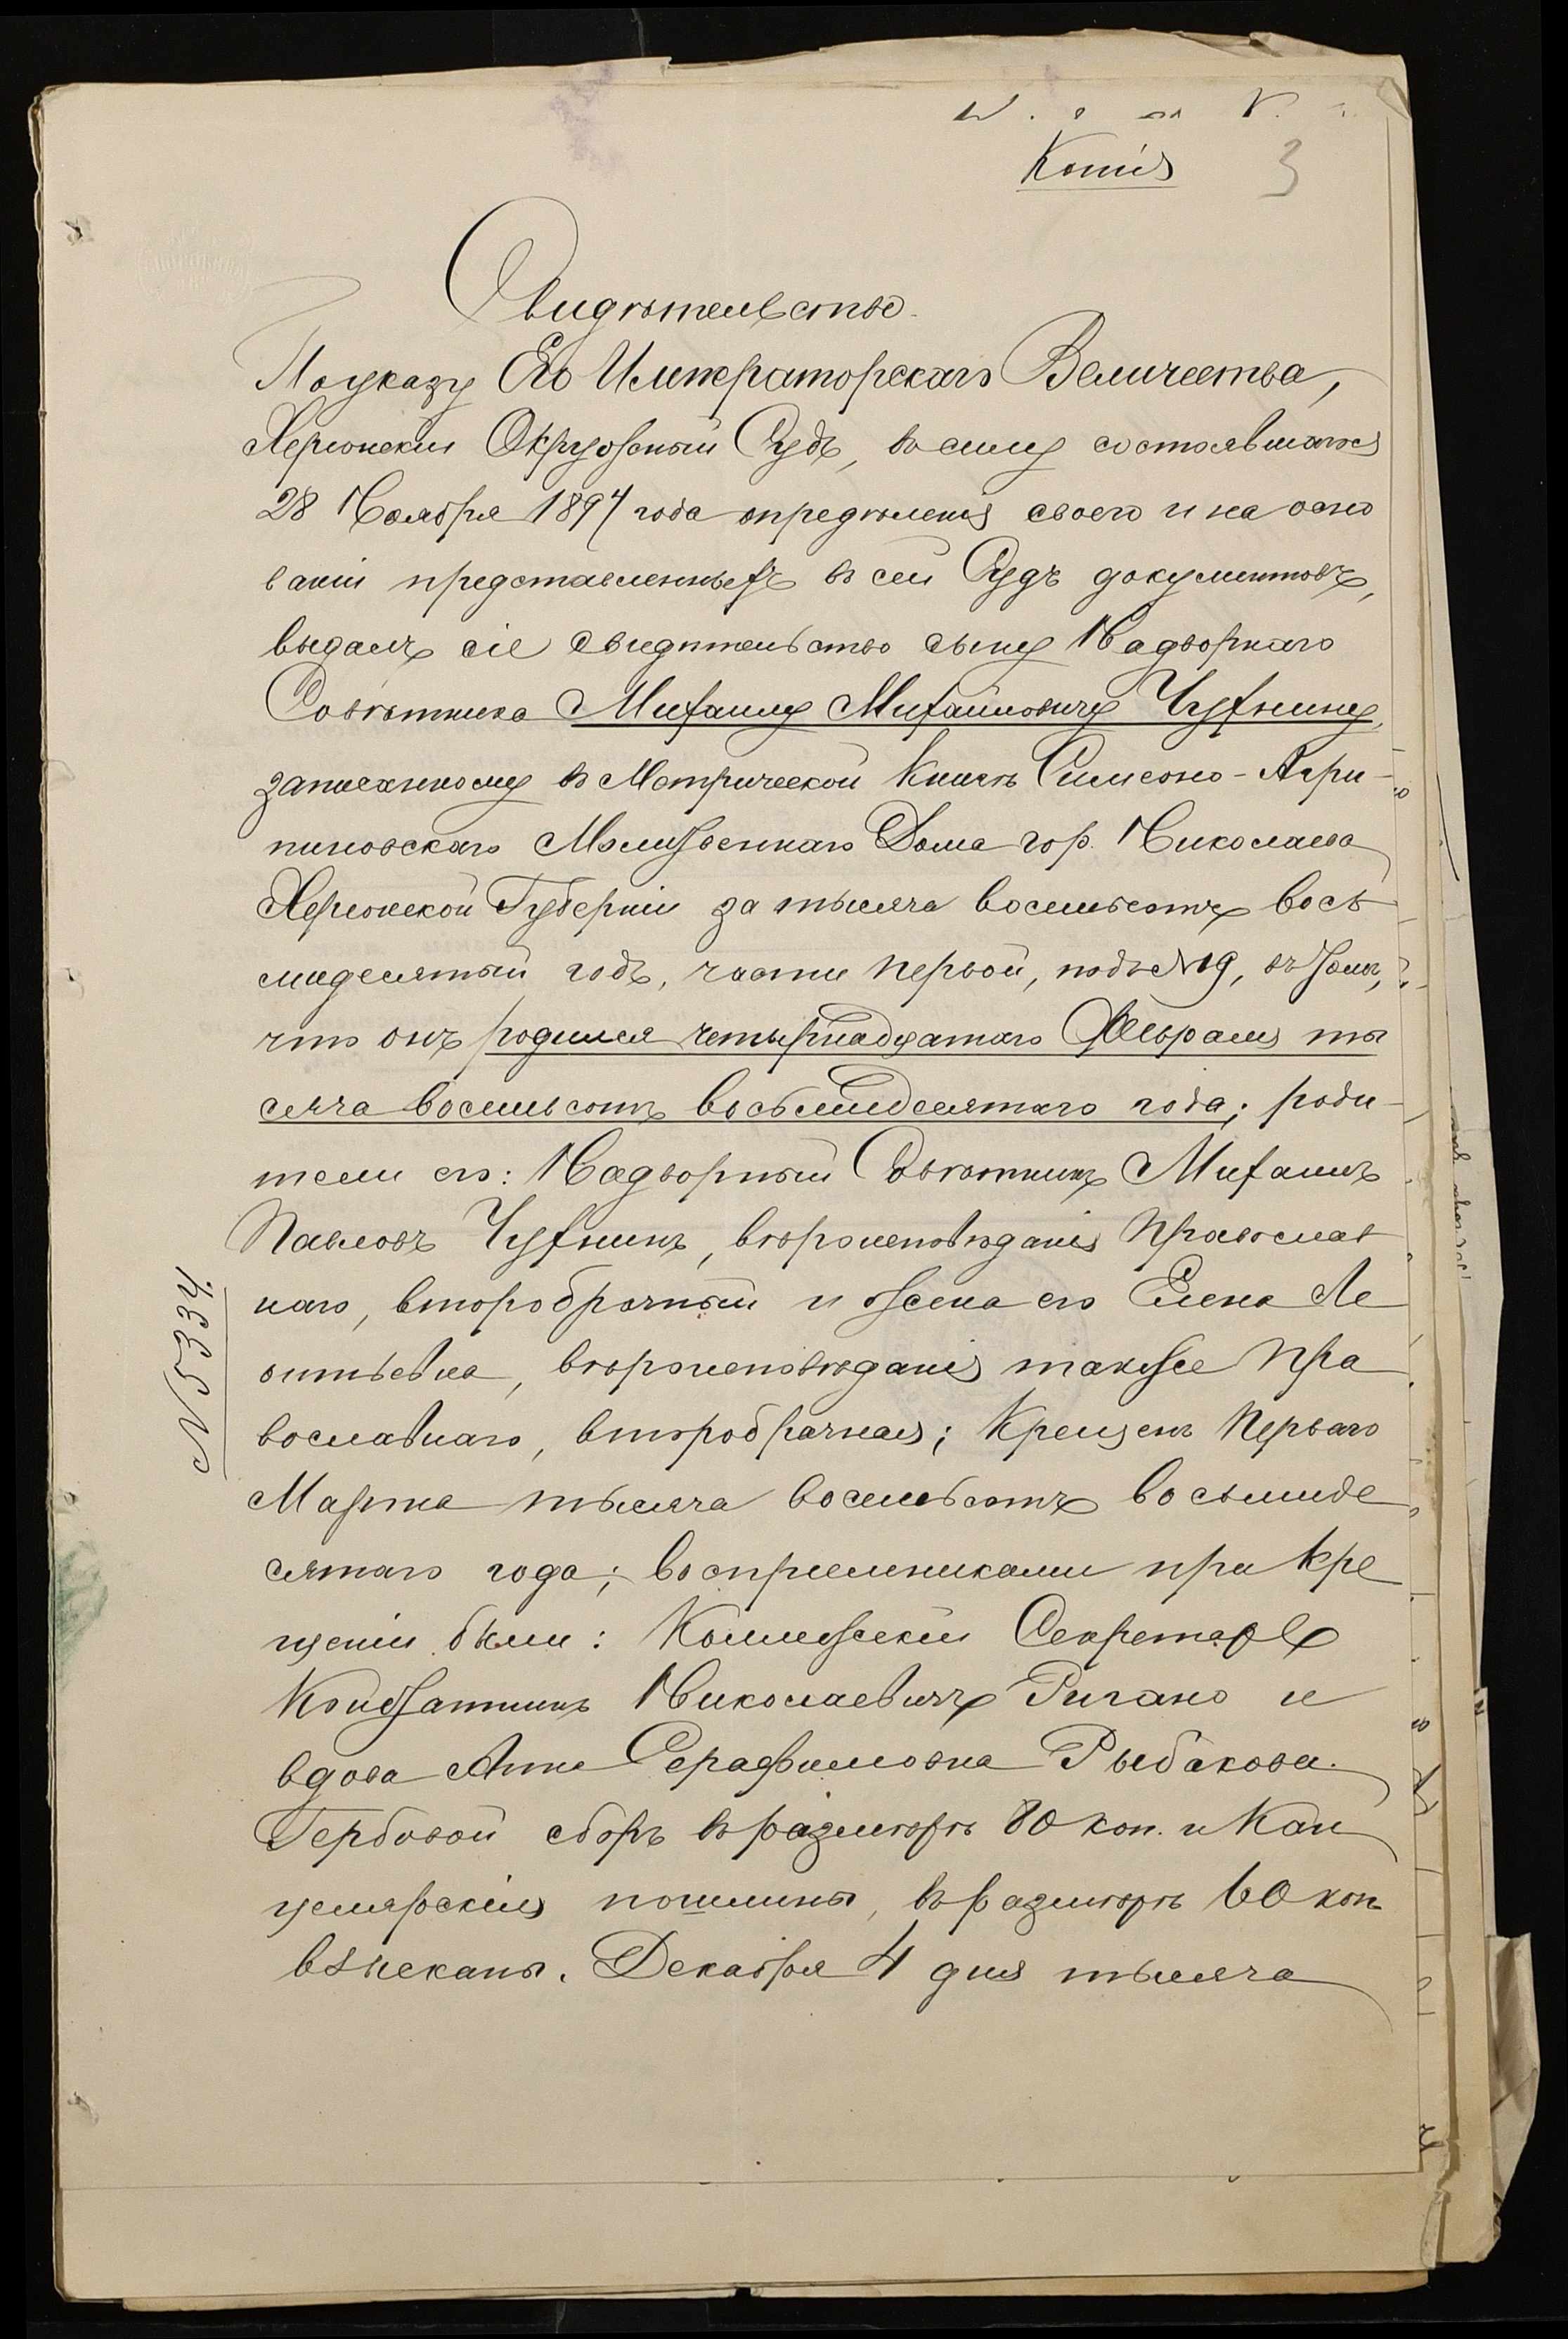 Копія 3
Свидѣтельство.
По указу Его Императорскаго Величества,
Херсонскій Окружный Судъ, въ силу состоявшагося
28 Ноября 1897 года опредѣленія своего и на осно
ваніи представленныхъ въ сей Судъ документовъ,
выдалъ сіе свидѣтельство сыну Надворнаго
Совѣтника Михаилу Михайловичу Чухнину,
записанному въ Метрической Книгѣ Симеоно-Агри-
пиновскаго Молитвеннаго Дома гор. Николаева
Херсонской Губерніи за тысяча восемьсотъ вось
мидесятый годъ, части первой, подъ №19, въ томъ,
что онъ родился четырнадцатаго Февраля ты
сяча восемьсотъ восьмидесятаго года; роди-
тели его: Надворный Совѣтникъ Михаилъ
Павловъ Чухнинъ, вѣроисповѣданія Православ
наго, второбрачный и жена его Елена Ле
онтьевна, вѣроисповѣданія также Пра
вославнаго, второбрачная; Крещенъ Перваго
Марта тысяча восемьсотъ восьмиде
сятаго года; воспріемниками при Кре
щеніи были: Коллежскій Секретарь
Константинъ Николаевичъ Ригано и
вдова Анна Серафимовна Рыбакова.
Гербовой сборъ въ размѣрѣ 80 коп. и Кан
целярскія пошлины, въ размѣрѣ 60 коп.
взысканы. Декабря 4 дня тысяча
№ 5334.